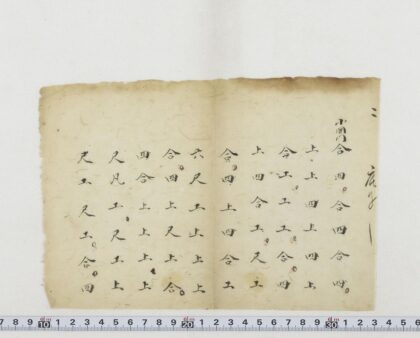 小開門
合四合四合四
上上四上四上
合工上工合四
上四合工尺工
合四上四合工
六尺工上上上
合四上尺上合
四合上上上上
尺凡工尺工上
尺工尺工合四